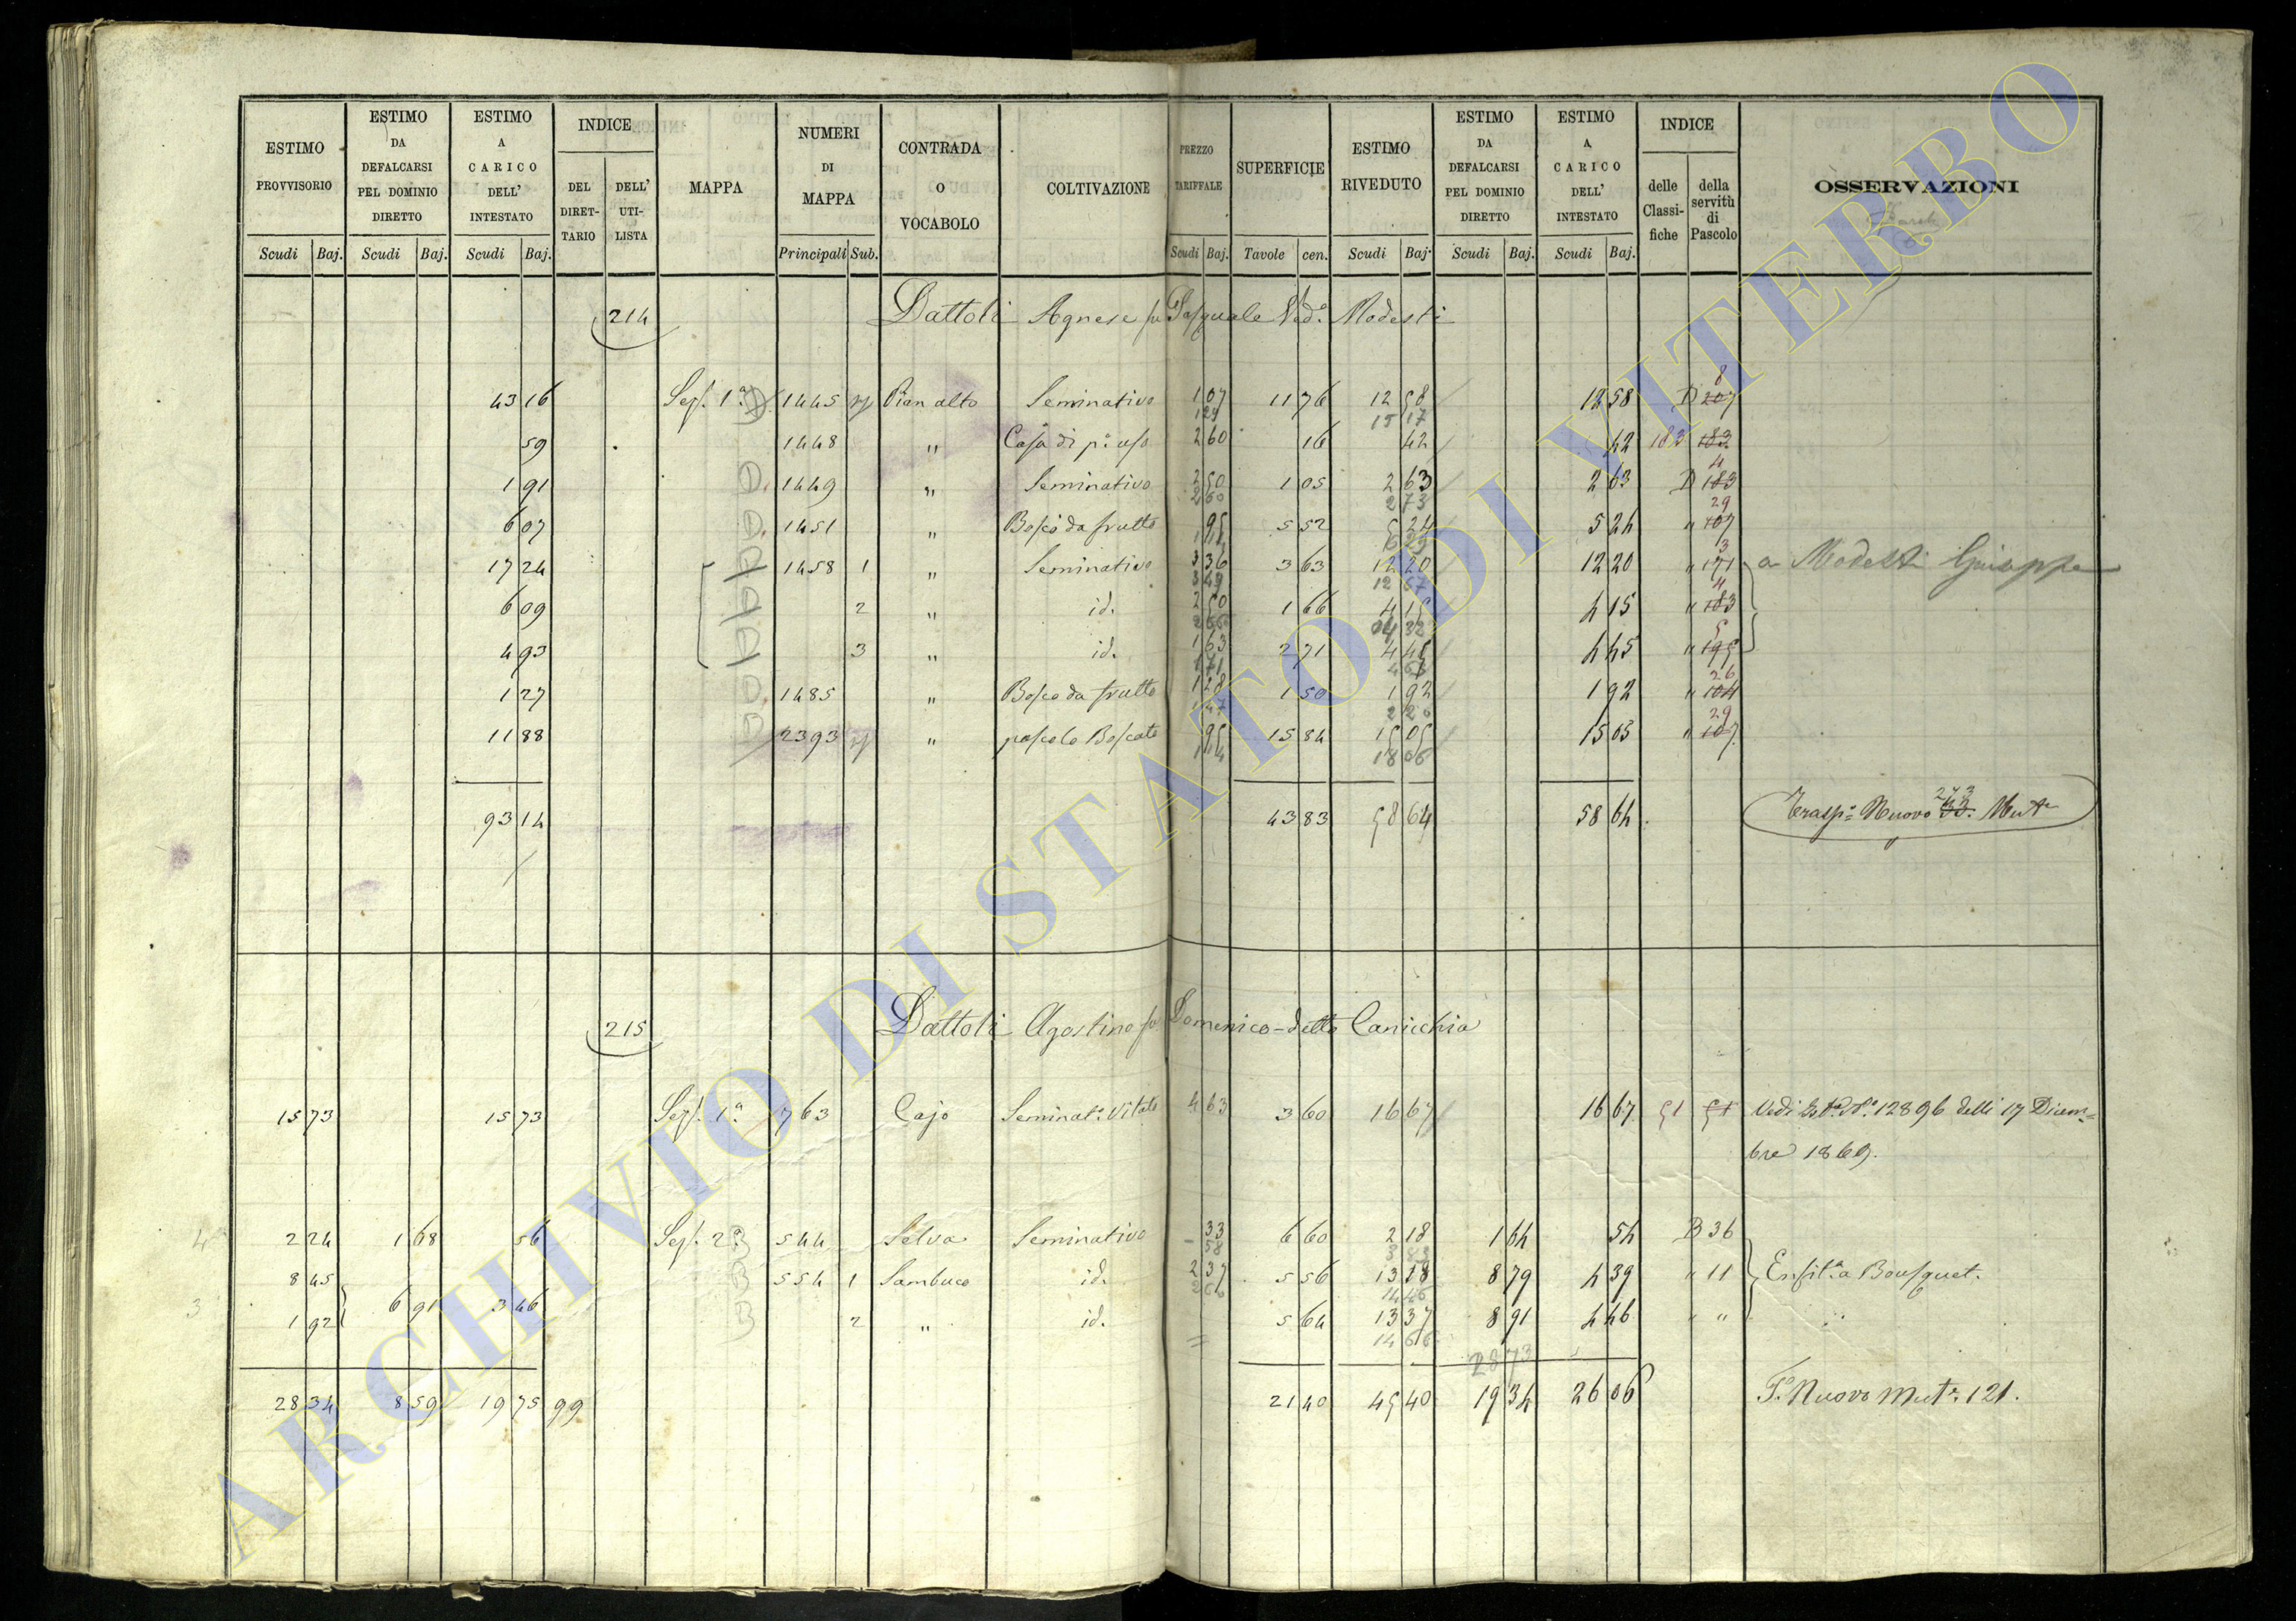 ESTIMO PROVVISORIO Scudi Baj. ESTIMO DA DEFALCARSI PEL DOMINIO DIRETTO Scudi Baj. ESTIMO A CARICO DELL' INTESTATO Scudi Baj. INDICE DEL DIRETTARIO DELL' UTILISTA MAPPA NUMERI DI MAPPA Principali Sub. CONTRADA O VOCABOLO COLTIVAZIONE PREZZO TARIFFALE Scudi Baj. SUPERFICIE Tavole cen. ESTIMO RIVEDUTO Scudi Baj. ESTIMO DA DEFALCARSI PEL DOMINIO DIRETTO Scudi Baj. ESTIMO A CARICO DELL' INTESTATO Scudi Baj. INDICE delle Classifiche della servitù di Pascolo OSSERVAZIONI
214 Dattoli Agnese fu Pasquale Ved.a Modesti
43 16 Sez. 1.a 1445 Pian alto Seminativo 1 07 1 29 11 76 12 58 15 17 12 58 D 8 207
59 1448 " Casa di p.o uso 2 60 16 42 42 183 183
1 91 D. 1449 " Seminativo 2 50 2 60 1 05 2 63 2 73 2 63 D 4 183
6 07 D. 1451 " Bosco da frutto 95 1 14 5 52 5 24 5 24 " 29 107
17 24 D 1458 1 " Seminativo 3 36 3 49 3 63 12 20 12 67 12 20 " 3 171 a Modesti Giuseppe
6 09 D 2 " id. 2 50 2 60 1 66 4 15 4 32 4 15 " 4 183
4 93 D 3 " id. 1 63 1 71 2 71 4 45 4 45 " 5 195
1 27 D. 1485 " Bosco da frutto 1 28 1 50 1 92 1 92 " 26 104
11 88 D 2393 " pascolo Boscato 95 1 14 15 84 15 05 18 06 15 05 " 29 107
93 14 43 83 58 64 58 64 Trasp.o Nuovo 273 Mut.e
215 Dattoli Agostino fu Domenico detto Canicchia
15 73 15 73 Sez. 1.a 763 Cajo Seminat.o Vitato 4 63 3 60 16 67 16 67 51 51 Vedi N.o 12896 delli 17 Dicem=
bre 1869.
4 2 24 1 68 56 Sez. 2.a B 544 Selva Seminativo - 33 58 6 60 2 18 3 83 1 64 54 B 36
8 45 B 554 1 Sambuco id. 2 37 2 60 5 56 13 18 14 46 8 79 4 39 " 11 Enfit.a a Bousquet.
3 1 92 6 91 3 46 B 2 " id. = 5 64 13 37 14 66 8 91 4 46 " "
28 73
28 34 8 59 19 75 99 21 40 45 40 19 34 26 06 T.o Nuovo Mut.e 121.
ARCHIVIO DI STATO DI VITERBO